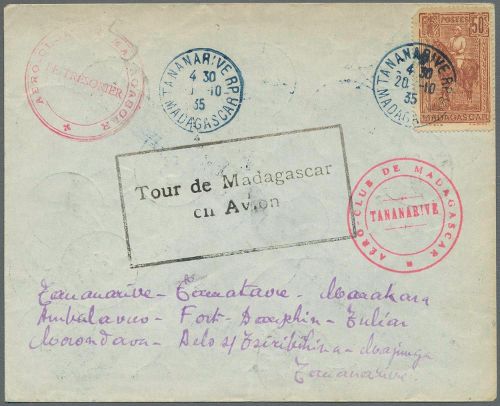 AÉRO-CLUB DE MADAGASCAR
LE TRÉSORIER
TANANARIVE RP
4 30
10
35
MADAGASCAR
50c
POSTES
MADAGASCAR
TANANARIVE RP
4 30
20 -10
35
MADAGASCAR
Tour de Madagascar
en Avion
AÉRO-CLUB DE MADAGASCAR
TANANARIVE
Tananarive - Tamatave - Manakara
Ambalavao - Fort-Dauphin - Tuléar
Morondava - Belo s/ Tsiribihina - Majunga
Tananarive